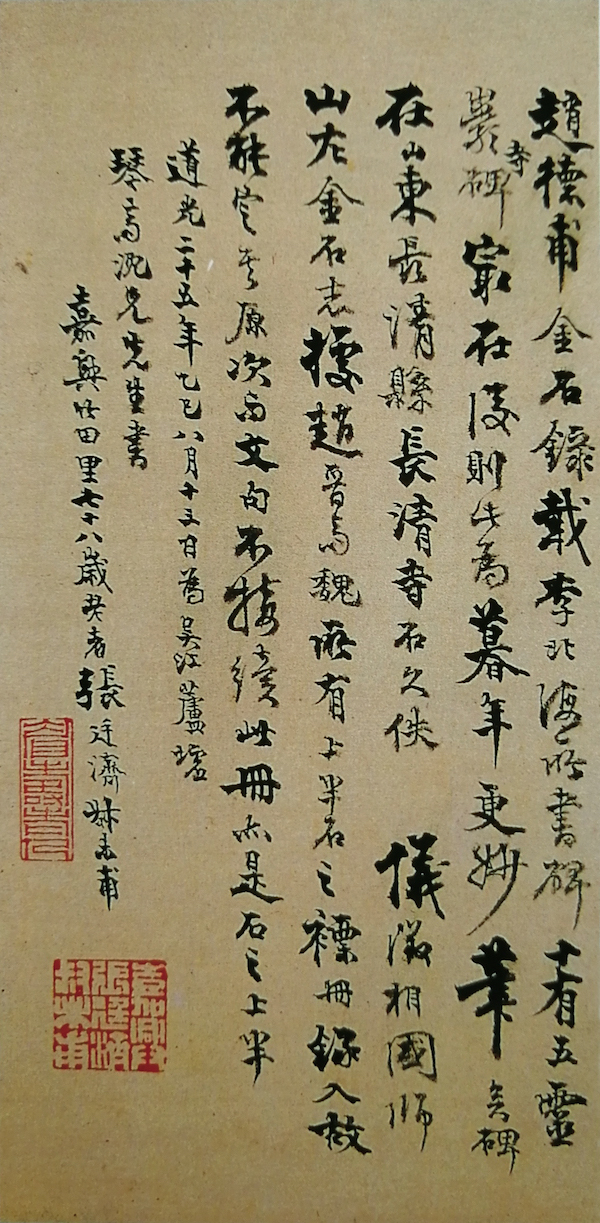 趙德甫金石錄載李北海所書碑十有五靈
巖寺碑冣在後則此為暮年更妙筆矣碑
在山東長清縣長清寺石久佚　儀徵相國師
山左金石志據趙晉齋魏所有上半石之褾冊錄入故
不能定其原次而文句不接續此冊亦是石之上半
道光二十五年乙巳八月十五日為吳江蘆墟
琴高沈兄先生書
嘉興竹田里七十八歲老者張廷濟叔未甫